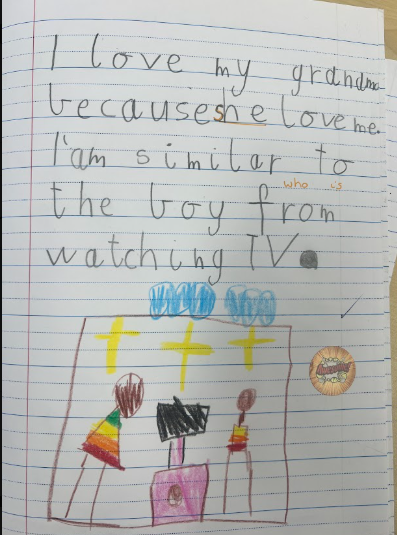 I love my grandma
because she love me.
I'am similar to
who is
the boy from
watching TV.